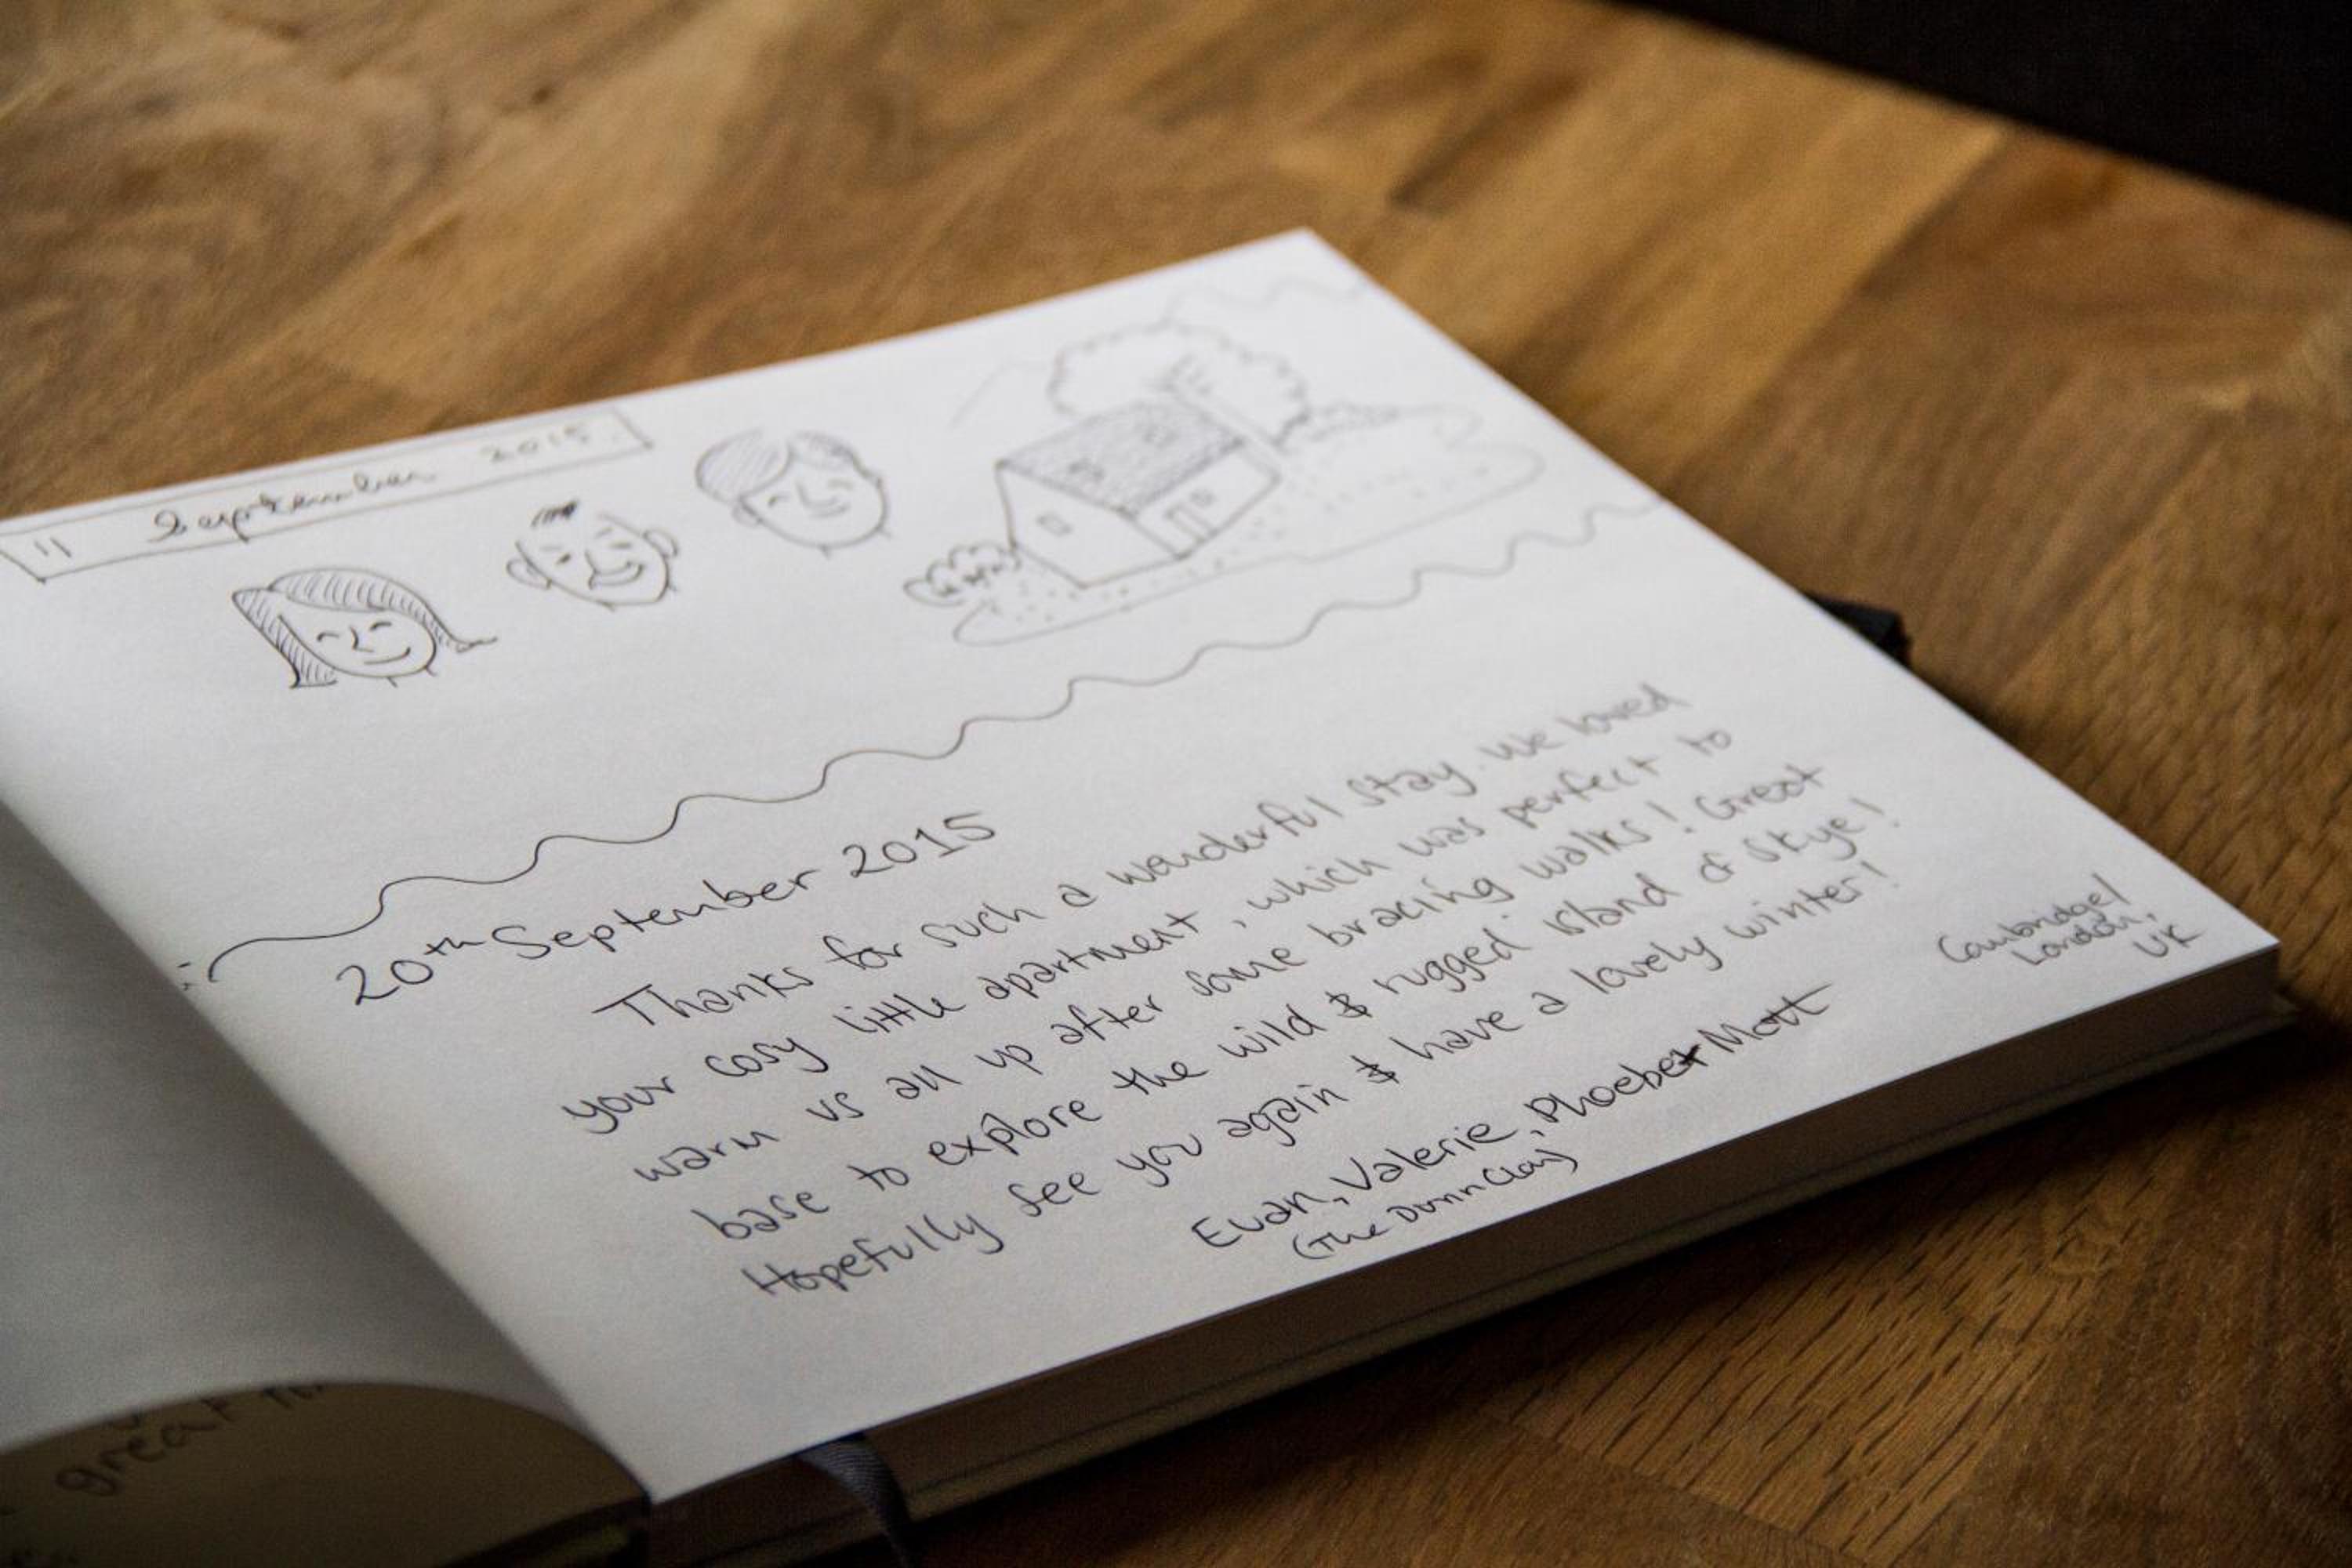 11 September 2015
20th September 2015
Thanks for such a wonderful stay. We loved
your cosy little apartment, which was perfect to
warm us all up after some bracing walks! Great
base to explore the wild & rugged island of Skye!
Hopefully see you again & have a lovely winter!
Euan, Valerie, Phoebe & Matt
(The Dunn Clan)
Cambridge/
London,
UK
great